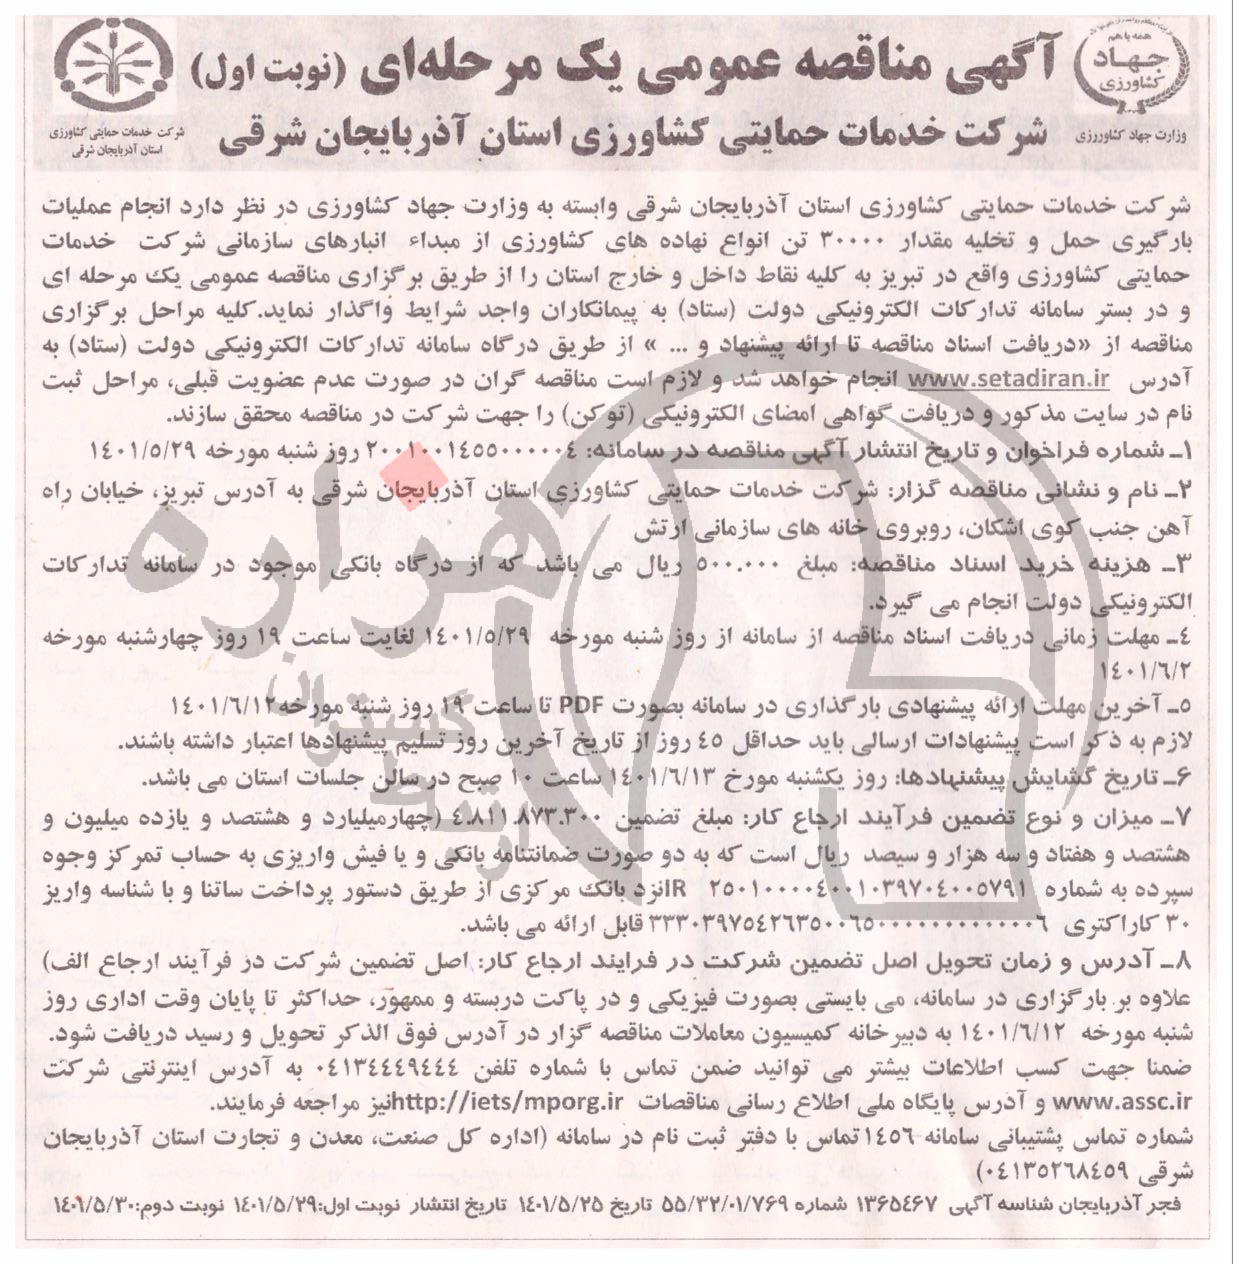 آگهی مناقصه عمومی یک مرحله‌ای (نوبت اول)
شرکت خدمات حمایتی کشاورزی استان آذربایجان شرقی
همه با هم
جهاد
کشاورزی
وزارت جهاد کشاورزی
شرکت خدمات حمایتی کشاورزی
استان آذربایجان شرقی
شرکت خدمات حمایتی کشاورزی استان آذربایجان شرقی وابسته به وزارت جهاد کشاورزی در نظر دارد انجام عملیات
بارگیری حمل و تخلیه مقدار ۳۰۰۰۰ تن انواع نهاده های کشاورزی از مبداء انبارهای سازمانی شرکت خدمات
حمایتی کشاورزی واقع در تبریز به کلیه نقاط داخل و خارج استان را از طریق برگزاری مناقصه عمومی یک مرحله ای
و در بستر سامانه تدارکات الکترونیکی دولت (ستاد) به پیمانکاران واجد شرایط واگذار نماید.کلیه مراحل برگزاری
مناقصه از «دریافت اسناد مناقصه تا ارائه پیشنهاد و ... » از طریق درگاه سامانه تدارکات الکترونیکی دولت (ستاد) به
آدرس www.setadiran.ir انجام خواهد شد و لازم است مناقصه گران در صورت عدم عضویت قبلی، مراحل ثبت
نام در سایت مذکور و دریافت گواهی امضای الکترونیکی (توکن) را جهت شرکت در مناقصه محقق سازند.
۱ـ شماره فراخوان و تاریخ انتشار آگهی مناقصه در سامانه: ۲۰۰۱۰۰۱۴۵۵۰۰۰۰۰۴ روز شنبه مورخه ۱۴۰۱/۵/۲۹
۲ـ نام و نشانی مناقصه گزار: شرکت خدمات حمایتی کشاورزی استان آذربایجان شرقی به آدرس تبریز، خیابان راه
آهن جنب کوی اشکان، روبروی خانه های سازمانی ارتش
۳ـ هزینه خرید اسناد مناقصه: مبلغ ۵۰۰.۰۰۰ ریال می باشد که از درگاه بانکی موجود در سامانه تدارکات
الکترونیکی دولت انجام می گیرد.
۴ـ مهلت زمانی دریافت اسناد مناقصه از سامانه از روز شنبه مورخه ۱۴۰۱/۵/۲۹ لغایت ساعت ۱۹ روز چهارشنبه مورخه
۱۴۰۱/۶/۲
۵ـ آخرین مهلت ارائه پیشنهادی بارگذاری در سامانه بصورت PDF تا ساعت ۱۹ روز شنبه مورخه۱۴۰۱/۶/۱۲
لازم به ذکر است پیشنهادات ارسالی باید حداقل ۴۵ روز از تاریخ آخرین روز تسلیم پیشنهادها اعتبار داشته باشند.
۶ـ تاریخ گشایش پیشنهادها: روز یکشنبه مورخ ۱۴۰۱/۶/۱۳ ساعت ۱۰ صبح در سالن جلسات استان می باشد.
۷ـ میزان و نوع تضمین فرآیند ارجاع کار: مبلغ تضمین ۴.۸۱۱.۸۷۳.۳۰۰ (چهارمیلیارد و هشتصد و یازده میلیون و
هشتصد و هفتاد و سه هزار و سیصد ریال است که به دو صورت ضمانتنامه بانکی و یا فیش واریزی به حساب تمرکز وجوه
سپرده به شماره IR ۲۵۰۱۰۰۰۰۴۰۰۱۰۳۹۷۰۴۰۰۵۷۹۱نزد بانک مرکزی از طریق دستور پرداخت ساتنا و با شناسه واریز
۳۰ کاراکتری ۳۳۳۰۳۹۷۵۴۲۶۳۵۰۰۶۵۰۰۰۰۰۰۰۰۰۰۰۰۰۶ قابل ارائه می باشد.
۸ـ آدرس و زمان تحویل اصل تضمین شرکت در فرایند ارجاع کار: اصل تضمین شرکت در فرآیند ارجاع الف)
علاوه بر بارگزاری در سامانه، می بایستی بصورت فیزیکی و در پاکت دربسته و ممهور، حداکثر تا پایان وقت اداری روز
شنبه مورخه ۱۴۰۱/۶/۱۲ به دبیرخانه کمیسیون معاملات مناقصه گزار در آدرس فوق الذکر تحویل و رسید دریافت شود.
ضمنا جهت کسب اطلاعات بیشتر می توانید ضمن تماس با شماره تلفن ۰۴۱۳۴۴۴۹۴۴۴ به آدرس اینترنتی شرکت
www.assc.ir و آدرس پایگاه ملی اطلاع رسانی مناقصات http://iets/mporg.irنیز مراجعه فرمایند.
شماره تماس پشتیبانی سامانه ۱۴۵۶تماس با دفتر ثبت نام در سامانه (اداره کل صنعت، معدن و تجارت استان آذربایجان
شرقی ۰۴۱۳۵۲۶۸۴۵۹)
فجر آذربایجان شناسه آگهی ۱۳۶۵۴۶۷ شماره ۵۵/۳۲/۰۱/۷۶۹ تاریخ ۱۴۰۱/۵/۲۵ تاریخ انتشار نوبت اول:۱۴۰۱/۵/۲۹ نوبت دوم:۱۴۰۱/۵/۳۰
هزاره